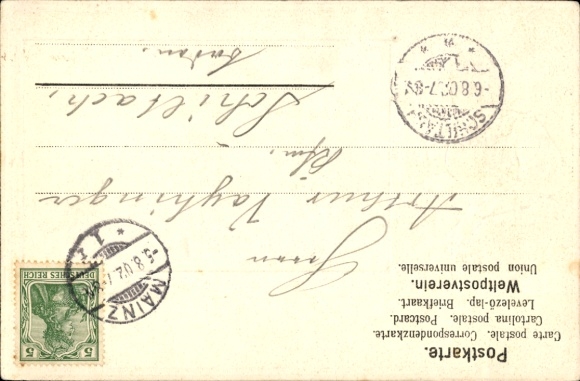 Postkarte.
Carte postale. Correspondenzkarte.
Cartolina postale. Postcard.
Levelező-lap. Briefkaart.
Weltpostverein.
Union postale universelle.
5 5
DEUTSCHES REICH
MAINZ
-5.8.02.
* 1 *
Herrn
Arthur Vayhinger
Kfm.
Schiltach,
Baden.
SCHILTACH
-6.8.02.7-8V